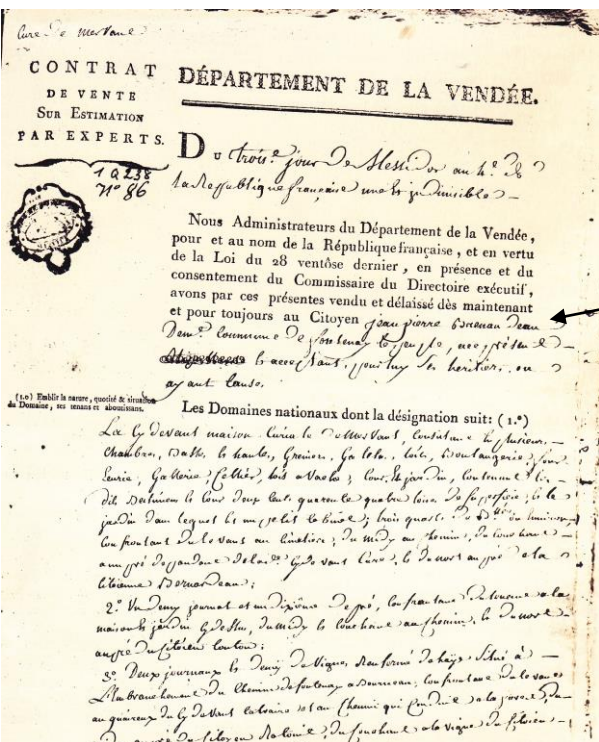 Cure de Mervant
CONTRAT
DE VENTE
SUR ESTIMATION
PAR EXPERTS.
1 Q 238
N° 86
DÉPARTEMENT DE LA VENDÉE.
Du trois.e jour de Messidor an 4.e de
la République française une et indivisible
Nous Administrateurs du Département de la Vendée,
pour et au nom de la République française, et en vertu
de la Loi du 28 ventôse dernier, en présence et du
consentement du Commissaire du Directoire exécutif,
avons par ces présentes vendu et délaissé dès maintenant
et pour toujours au Citoyen jean pierre
Dem.t Commune de fontenay le peuple, ace présent
et acceptant, pour luy ses héritiers ou
ayant cause.
(1.o) Etablir la nature, quotité & situation
du Domaine, ses tenans et aboutissans.
Les Domaines nationaux dont la désignation suit: (1.°)
La cy devant maison Curialle de Mervant, Consistant en plusieurs
Chambres, basses et hautes, Greniers, Galetas, Boulangerie,
Gallerie, Cellier, toit a Vaches, Cour et jardin, Contenant les
dits Batiments et Cour deux cent quarente quatre toises de superficie, et le
jardin dans lequel est un petit; trois quarts de
Confrontant du levant au Cimetière, du midy au Chemin, du Couchant
a un pré dependant de la cy devant Cure, et du nort au pré de la
Citoienne Bernardeau;
2.° Un demy journal et un dixième de pré, Confrontant du levant a la
maison et jardin cy dessus, du midy et couchant au Chemin, et du nort
au pré du Citoien;
3.° Deux journaux et demy de Vigne, Renfermé de hayes Situé a
L'Embranchement du Chemin de fontenay a Bourneau, Confrontant du levant
au du cy devant et au Chemin qui Conduit a la forest, du
du Citoyen, du Couchant a la vigne du Citoien